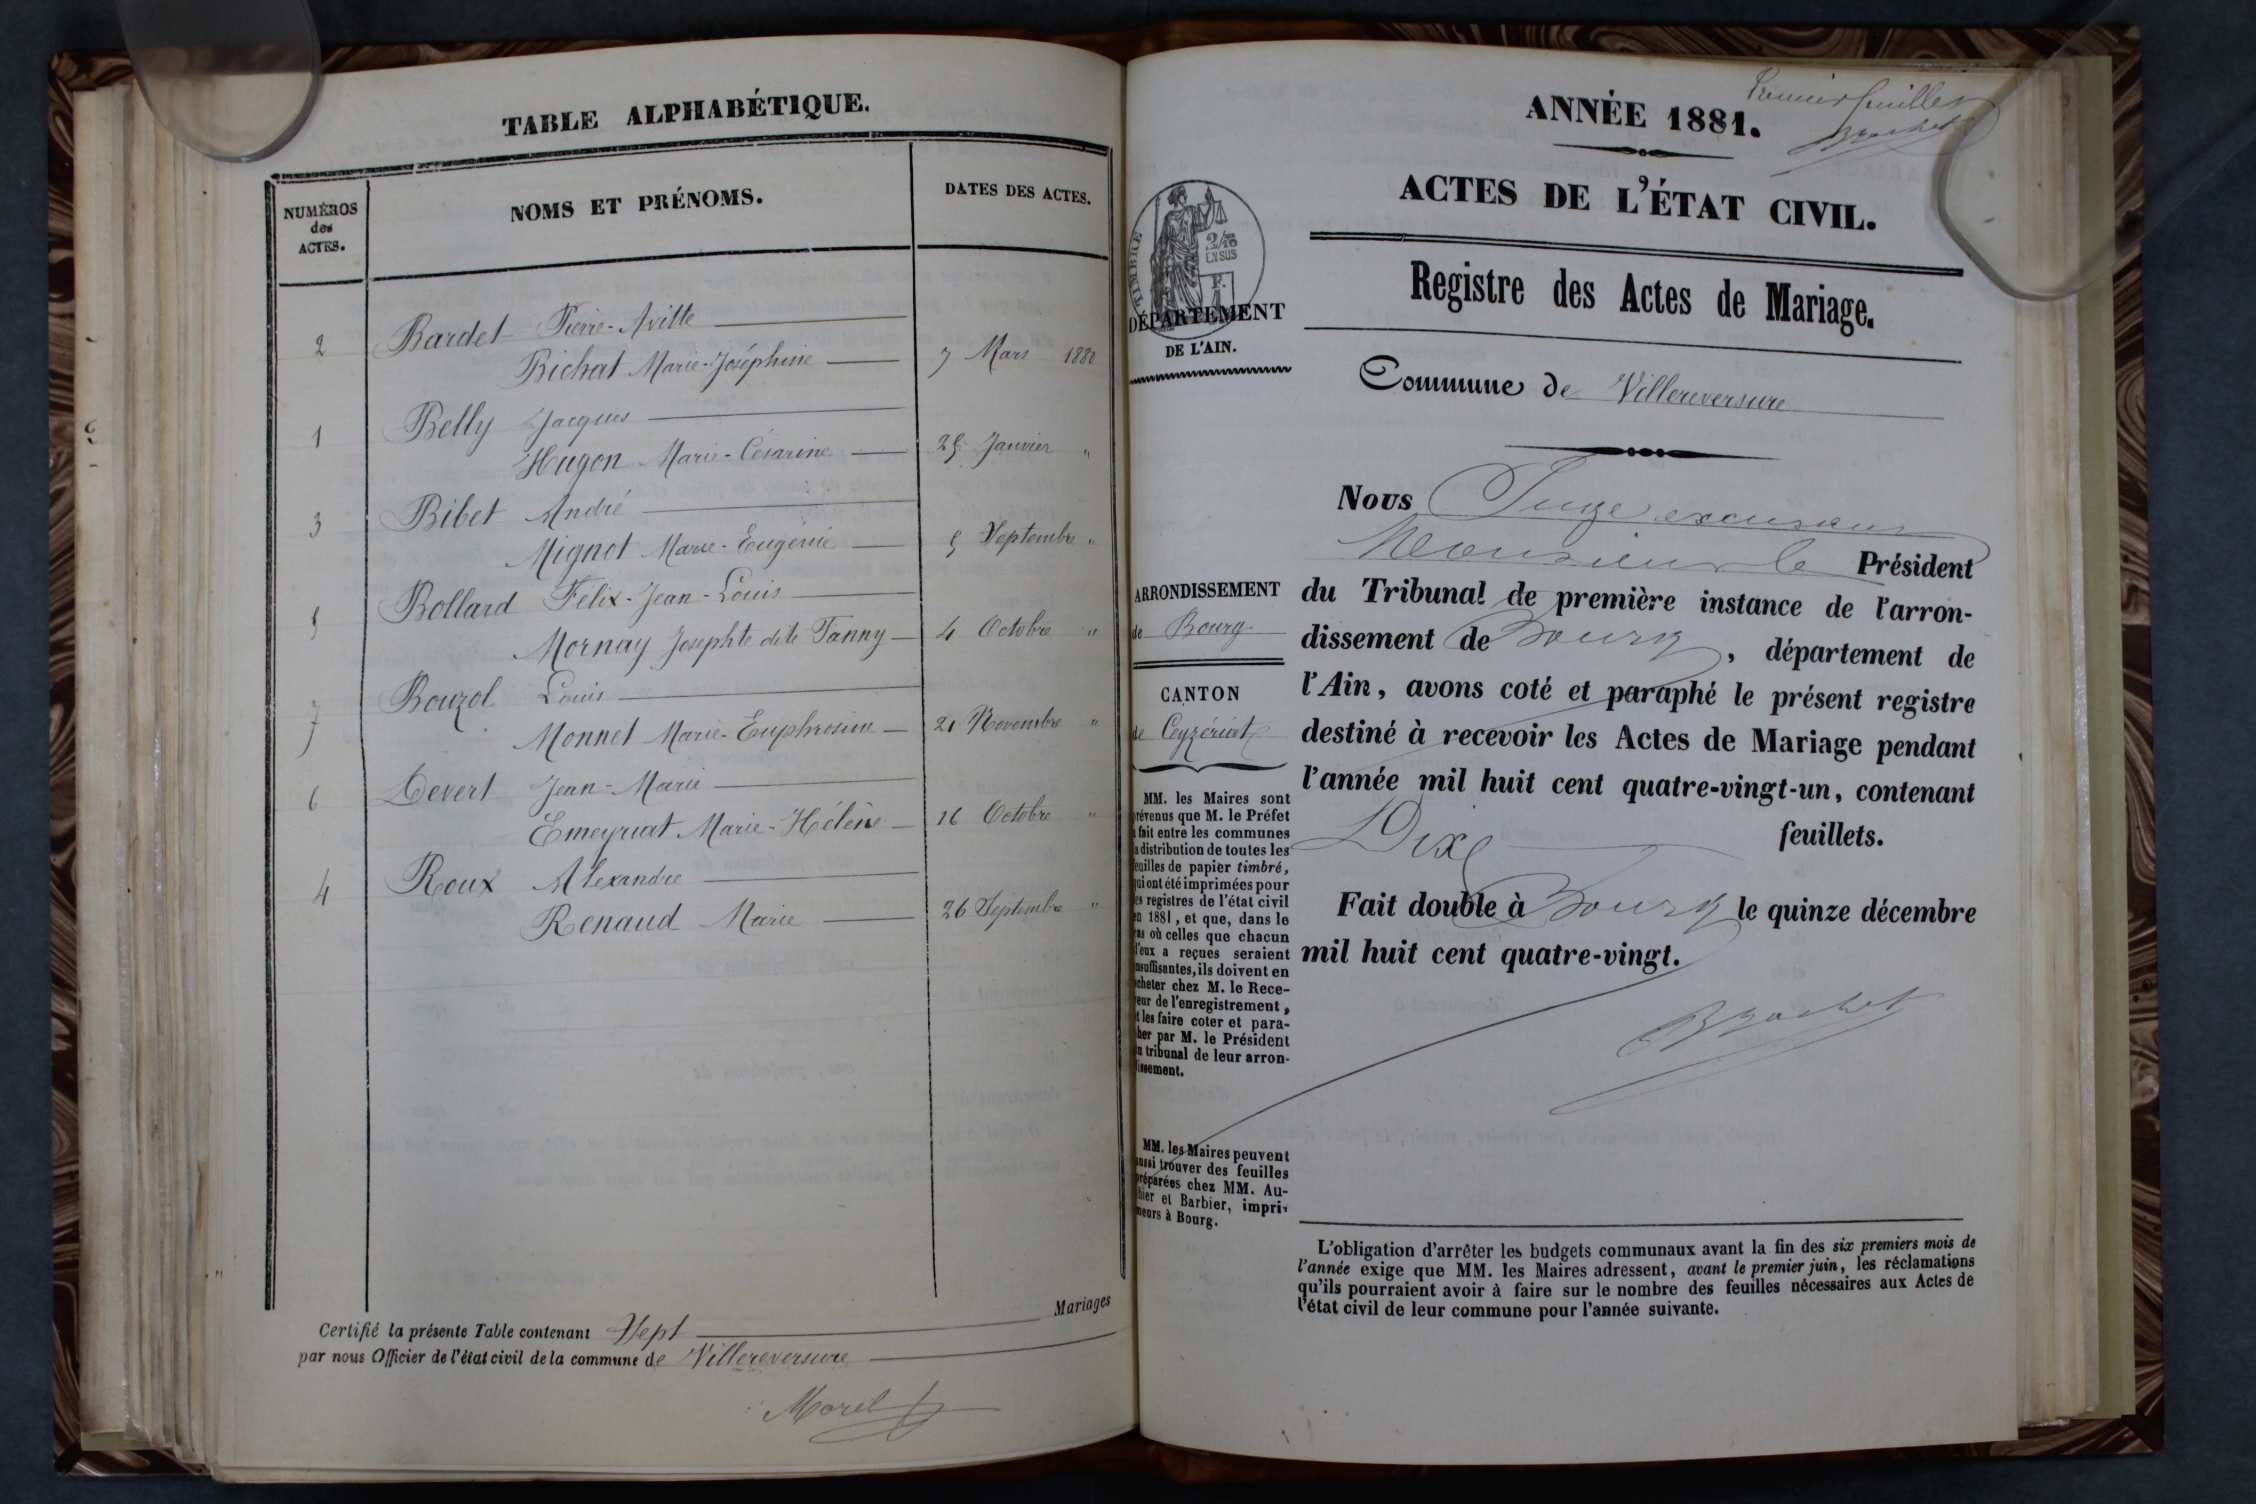 TABLE ALPHABÉTIQUE.
NUMÉROS
des
ACTES.
NOMS ET PRÉNOMS.
DATES DES ACTES.
2 Bardet Pierre-Aville
Bichat Marie-Joséphine 7 Mars 1880
1 Belly Jacques
Hugon Marie-Césarine 25 Janvier "
3 Bibet André
Mignot Marie-Eugénie 5 Septembre "
5 Bollard Félix-Jean-Louis
Mornay Josephte dite Fanny 4 Octobre "
7 Bouzol Louis
Monnet Marie-Euphrosine 21 Novembre "
6 Devert Jean-Marie
Emeyriat Marie-Hélène 16 Octobre "
4 Roux Alexandre
Renaud Marie 26 Septembre "
Certifié la présente Table contenant Sept Mariages
par nous Officier de l'état civil de la commune de Villereversure
Morel
Premier feuillet
Brochet
ANNÉE 1881.
ACTES DE L'ÉTAT CIVIL.
Registre des Actes de Mariage.
TIMBRE
2/10
EN SUS
F.
DÉPARTEMENT
DE L'AIN.
Commune de Villereversure
ARRONDISSEMENT
de Bourg
CANTON
de Ceyzériat
MM. les Maires sont
prévenus que M. le Préfet
a fait entre les communes
la distribution de toutes les
feuilles de papier timbré,
qui ont été imprimées pour
les registres de l'état civil
en 1881, et que, dans le
cas où celles que chacun
d'eux a reçues seraient
insuffisantes, ils doivent en
acheter chez M. le Rece-
veur de l'enregistrement,
et les faire coter et para-
pher par M. le Président
du tribunal de leur arron-
dissement.
MM. les Maires peuvent
aussi trouver des feuilles
préparées chez MM. Au-
thier et Barbier, impri-
meurs à Bourg.
Nous Juge excusant
Monsieur le Président
du Tribunal de première instance de l'arron-
dissement de Bourg, département de
l'Ain, avons coté et paraphé le présent registre
destiné à recevoir les Actes de Mariage pendant
l'année mil huit cent quatre-vingt-un, contenant
Dix feuillets.
Fait double à Bourg le quinze décembre
mil huit cent quatre-vingt.
Brochet
L'obligation d'arrêter les budgets communaux avant la fin des six premiers mois de
l'année exige que MM. les Maires adressent, avant le premier juin, les réclamations
qu'ils pourraient avoir à faire sur le nombre des feuilles nécessaires aux Actes de
l'état civil de leur commune pour l'année suivante.